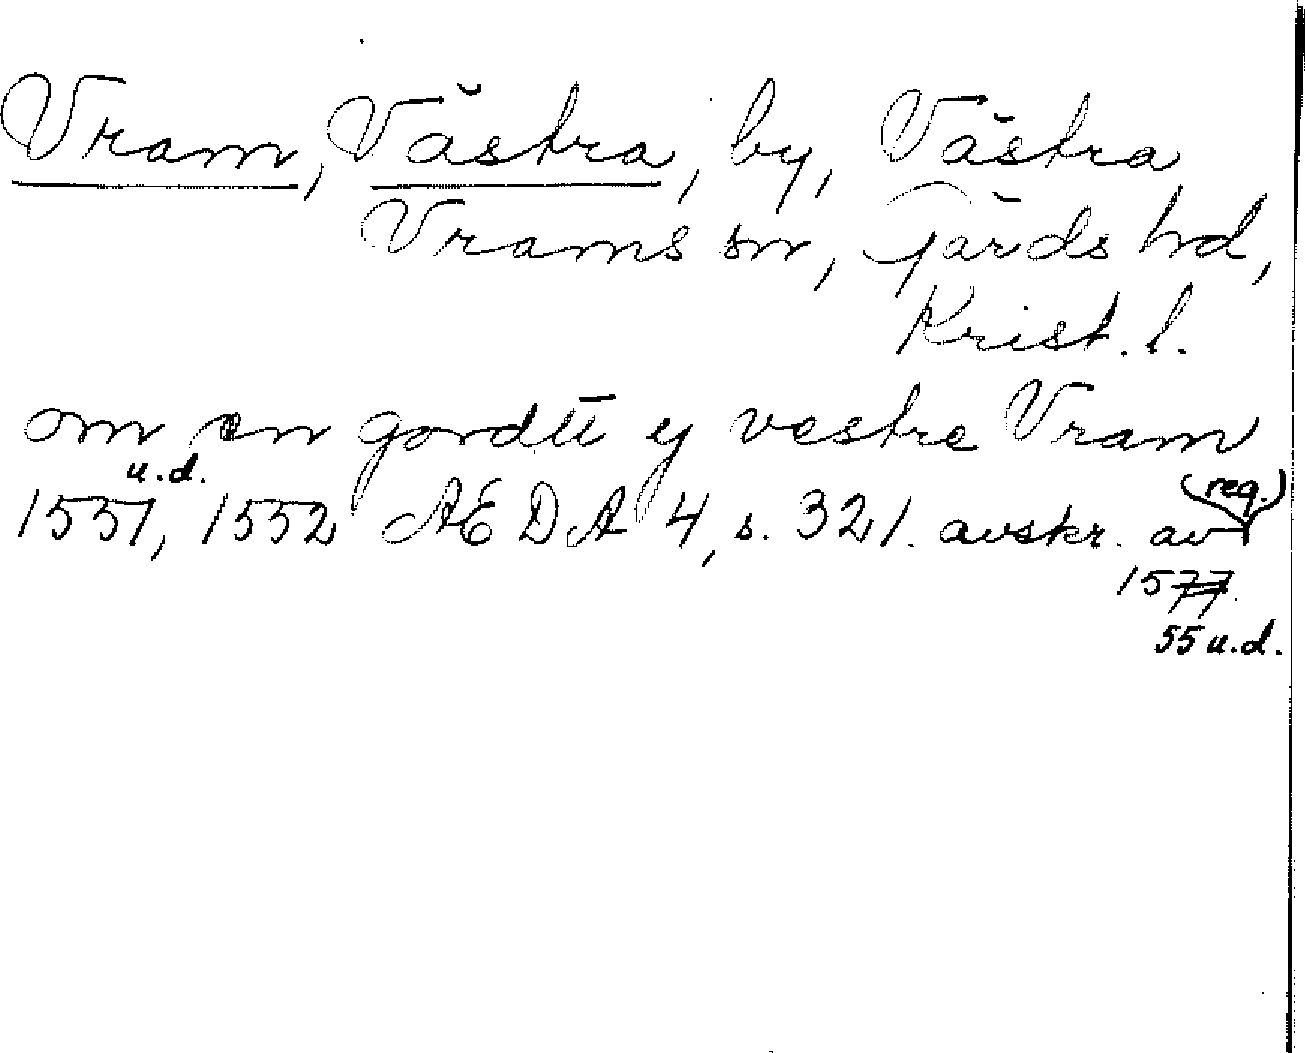 Vram, Västra, by, Västra
Vrams sn, Gärds hd,
Krist. l.
om en gordtt y vestre Vram
u.d.
(reg.)
1551, 1552 AEDA 4, s. 321. avskr. av
1577.
55 u.d.